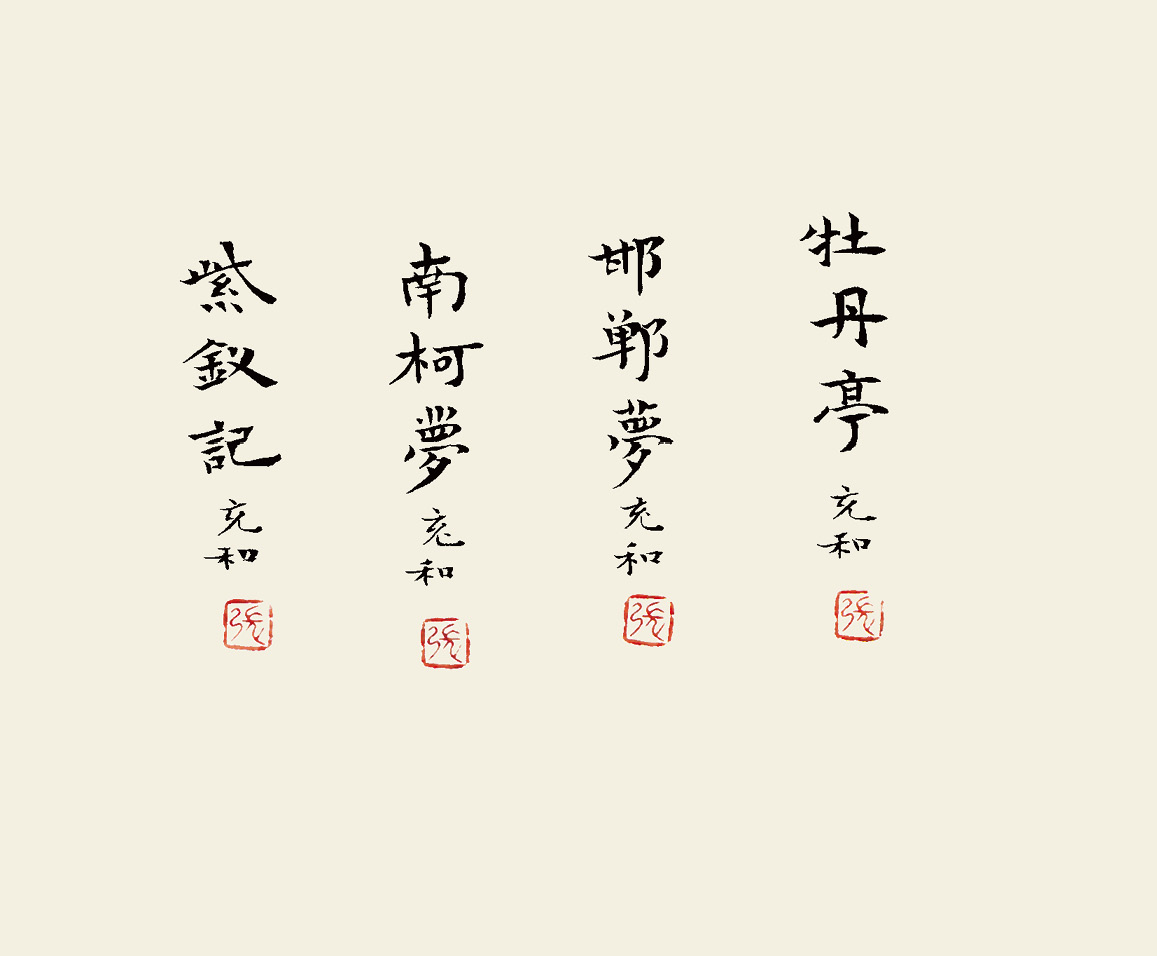 牡丹亭 充和
張
邯鄲夢 充和
張
南柯夢 充和
張
紫釵記 充和
張